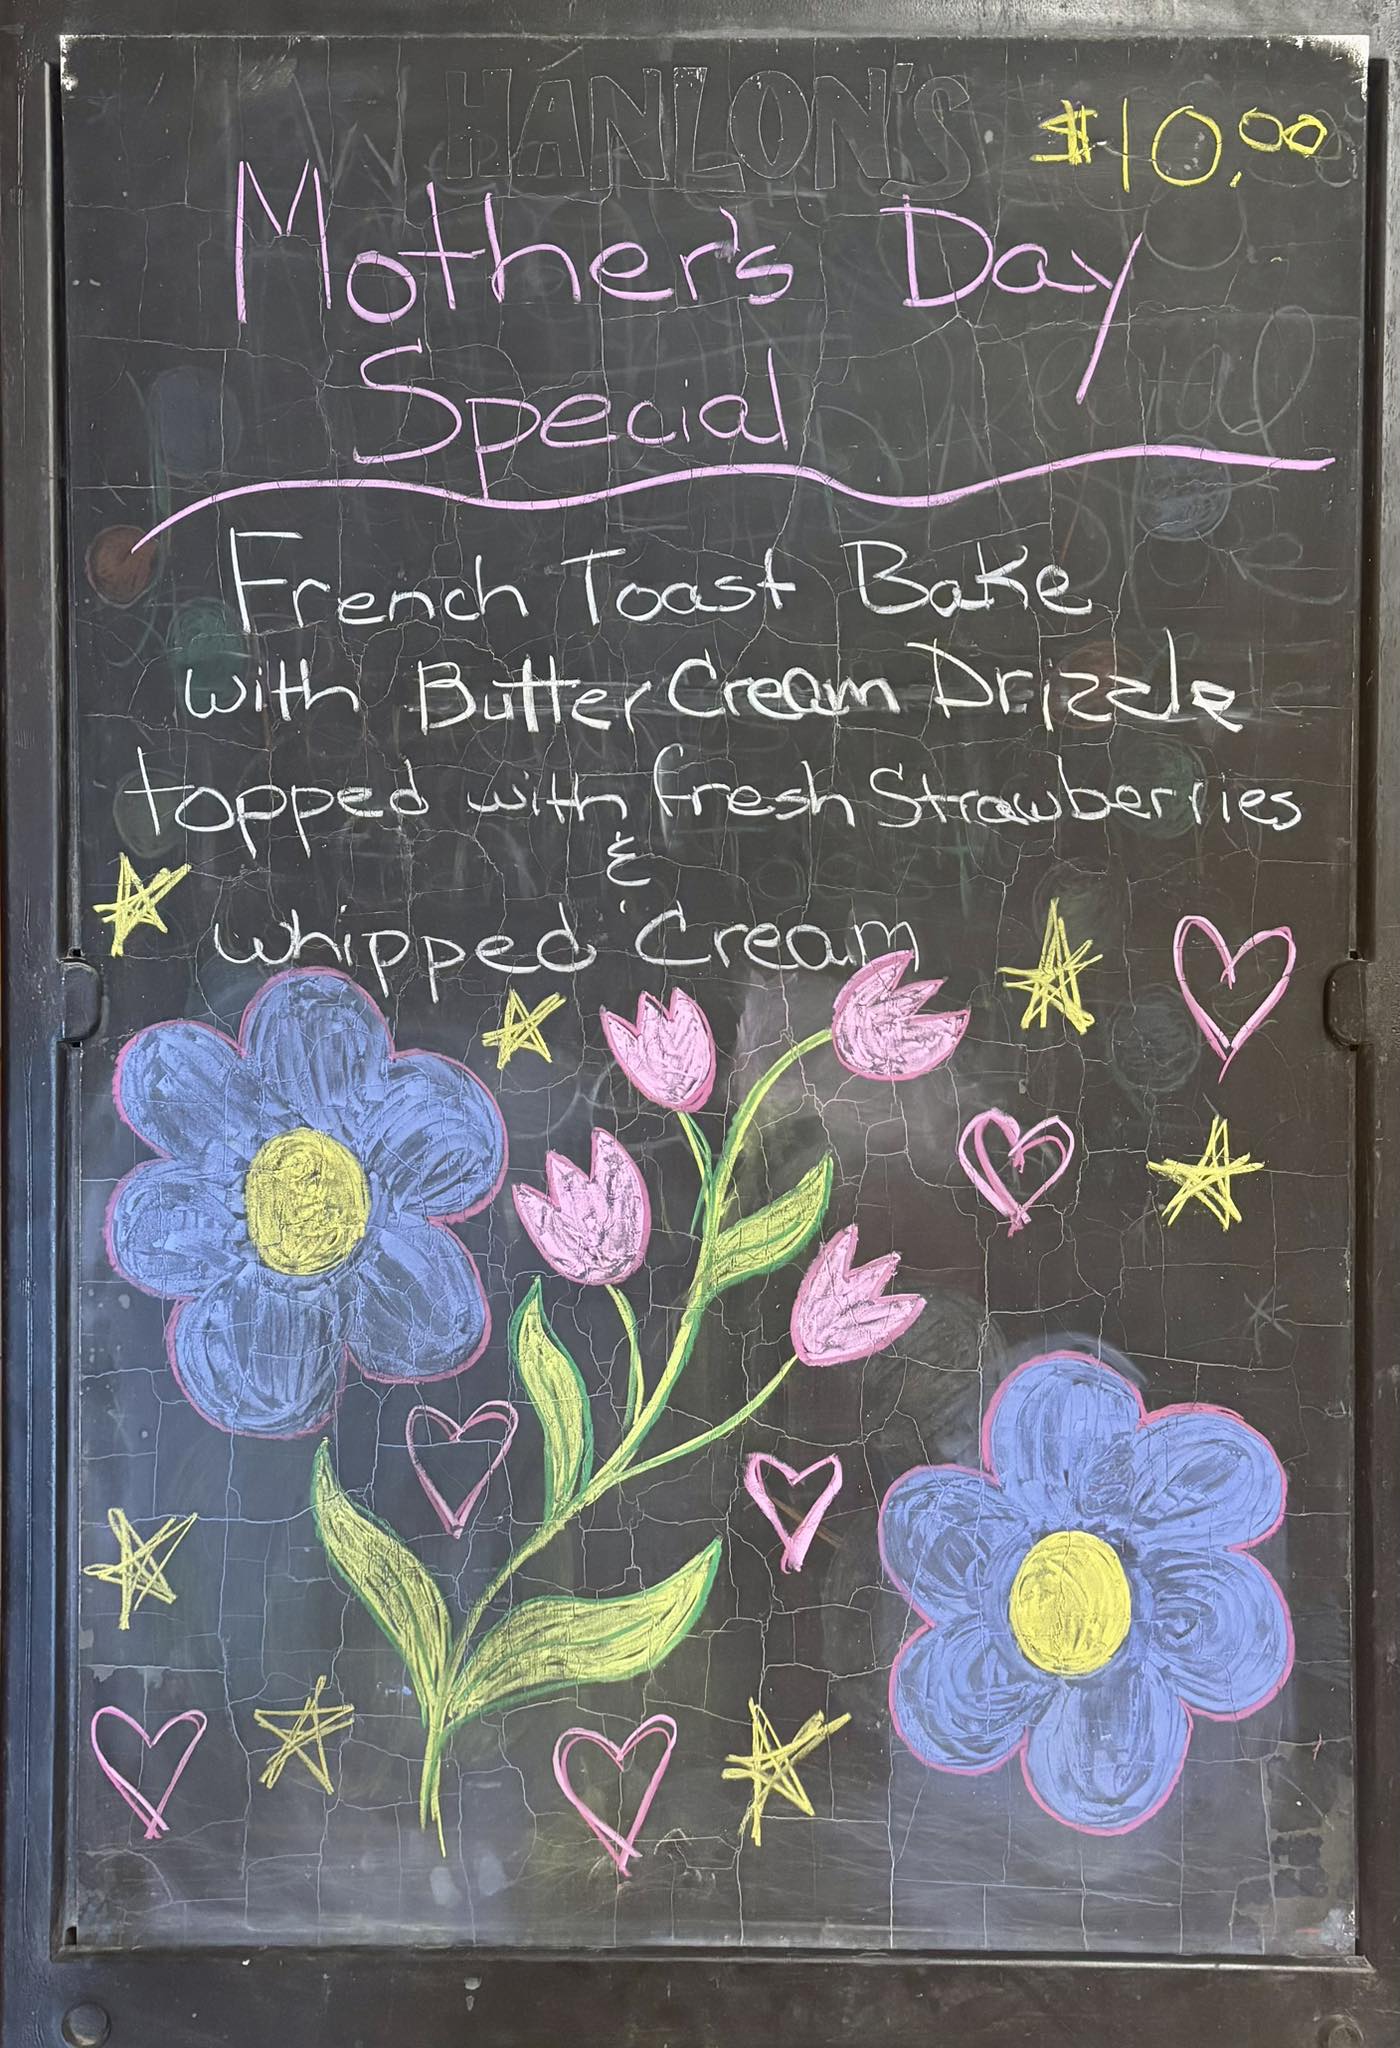 HANLON'S
$10.00
Mother's Day
Special
French Toast Bake
with Butter Cream Drizzle
topped with fresh Strawberries
&
whipped Cream